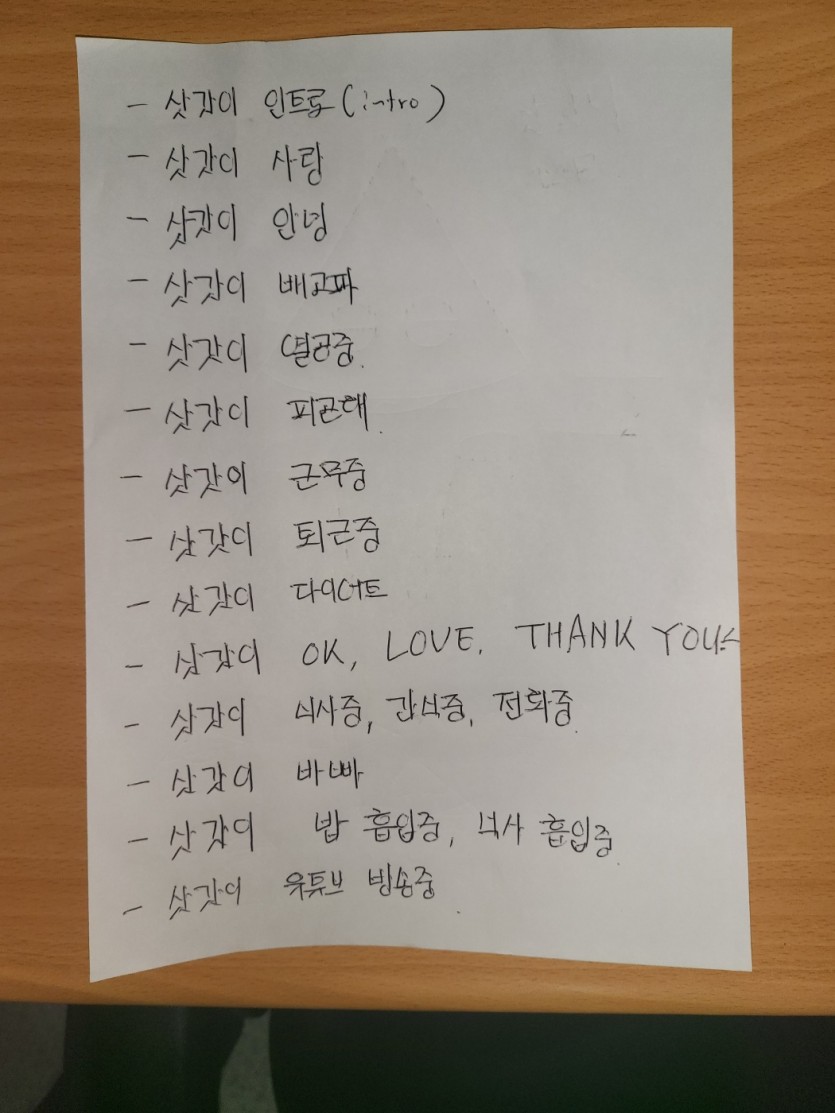 - 삿갓이 인트로(intro)
- 삿갓이 사랑
- 삿갓이 안녕
- 삿갓이 배고파
- 삿갓이 열공중.
- 삿갓이 피곤해.
- 삿갓이 근무중
- 삿갓이 퇴근중
- 삿갓이 다이어트
- 삿갓이 OK, LOVE, THANK YOU
- 삿갓이 식사중, 간식중, 전화중.
- 삿갓이 바빠
- 삿갓이 밥 흡입중, 식사 흡입중.
- 삿갓이 유튜브 방송중.